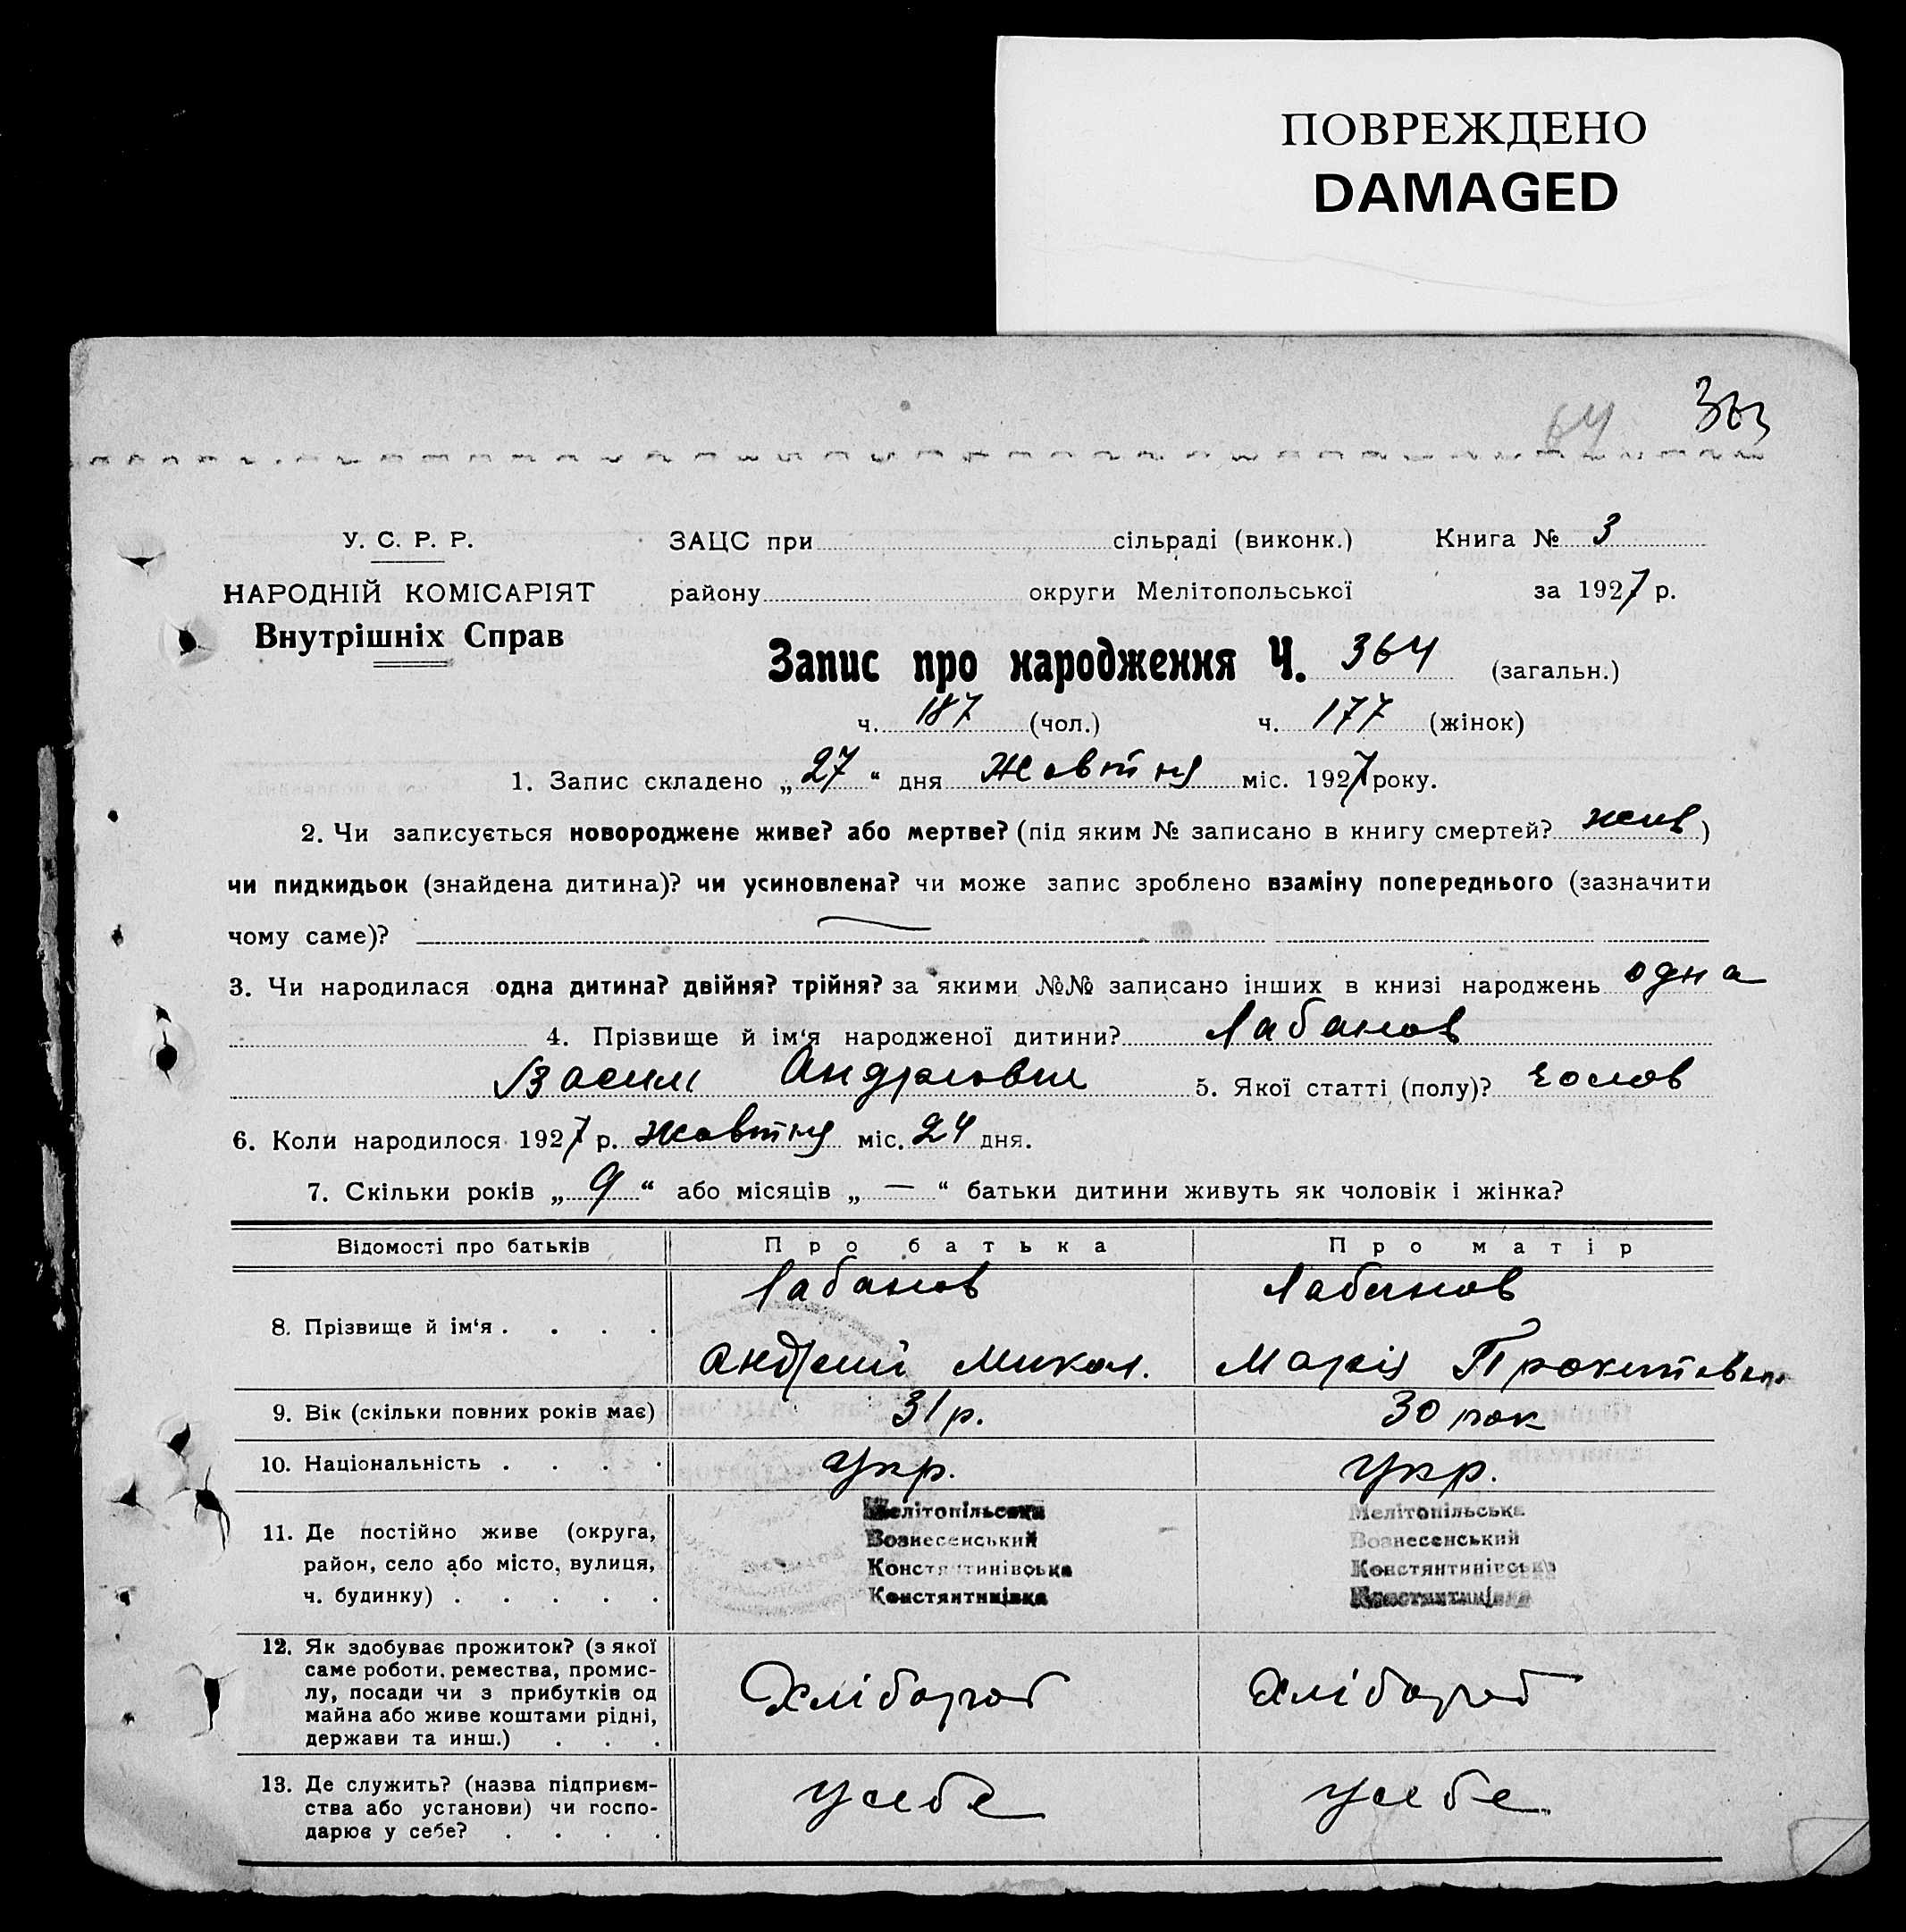 ПОВРЕЖДЕНО
DAMAGED
64 363
У. С. Р. Р. ЗАЦС при сільраді (виконк.) Книга № 3
НАРОДНІЙ КОМІСАРІЯТ району округи Мелітопольської за 1927 р.
Внутрішніх Справ
Запис про народження Ч. 364 (загальн.)
ч. 187 (чол.) ч. 177 (жінок)
1. Запис складено „27“ дня Жовтня міс. 1927 року.
2. Чи записується новороджене живе? або мертве? (під яким № записано в книгу смертей? жив)
чи пидкидьок (знайдена дитина)? чи усиновлена? чи може запис зроблено взаміну попереднього (зазначити
чому саме)? —
3. Чи народилася одна дитина? двійня? трійня? за якими №№ записано інших в книзі народжень одна
4. Прізвище й ім‘я народженої дитини? Лабанов
Васил Андрієвич 5. Якої статті (полу)? чолов
6. Коли народилося 1927 р. жовтня міс. 24 дня.
7. Скільки років „9“ або місяців „—“ батьки дитини живуть як чоловік і жінка?
Відомості про батьків Про батька Про матір
Лабанов Лабанов
8. Прізвище й ім‘я . . . .
Андрєий Микол. Марія
9. Вік (скільки повних років має) 31 р. 30 рок
10. Національність . . . . укр. укр.
Мелітопільська Мелітопільська
11. Де постійно живе (округа, Вознесенський Вознесенський
район, село або місто, вулиця, Констянтинівська Констянтинівська
ч. будинку) . . . . . Констянтинівка Констянтинівка
12. Як здобуває прожиток? (з якої
саме роботи, ремества, промис-
лу, посади чи з прибутків од Хлібороб Хлібороб
майна або живе коштами рідні,
держави та инш.) . . .
13. Де служить? (назва підприєм-
ства або установи) чи госпо- у себе у себе
дарює у себе? . . . .